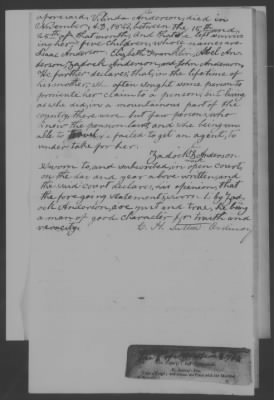 afterwards Volinda Anderson, died in
November, A.D. 1842, between the 15th and
25th of that month, and that she left surviv-
ing her five children, whose names are
Isaac Anderson, Elizabeth Trambler, Abel An-
derson, Zadock Anderson, and John Anderson,
He further declares that, in the lifetime of
his mother, she often sought some person to
prosecute her claim to a pension, but living
as she did, in a mountainous part of the
country, there were but few persons who
knew the pension laws and she being un-
able to travel & failed to get an agent, to
under take for her.
Zadock Anderson
Sworn to, and subscribed, in open court,
on the day and year above written, and
the said court declares, his opinion, that
the foregoing statement, sworn to by Zad-
ock Anderson, are just and true, he being
a man of good character for truth and
veracity.
C. H. Sutton Ordinary